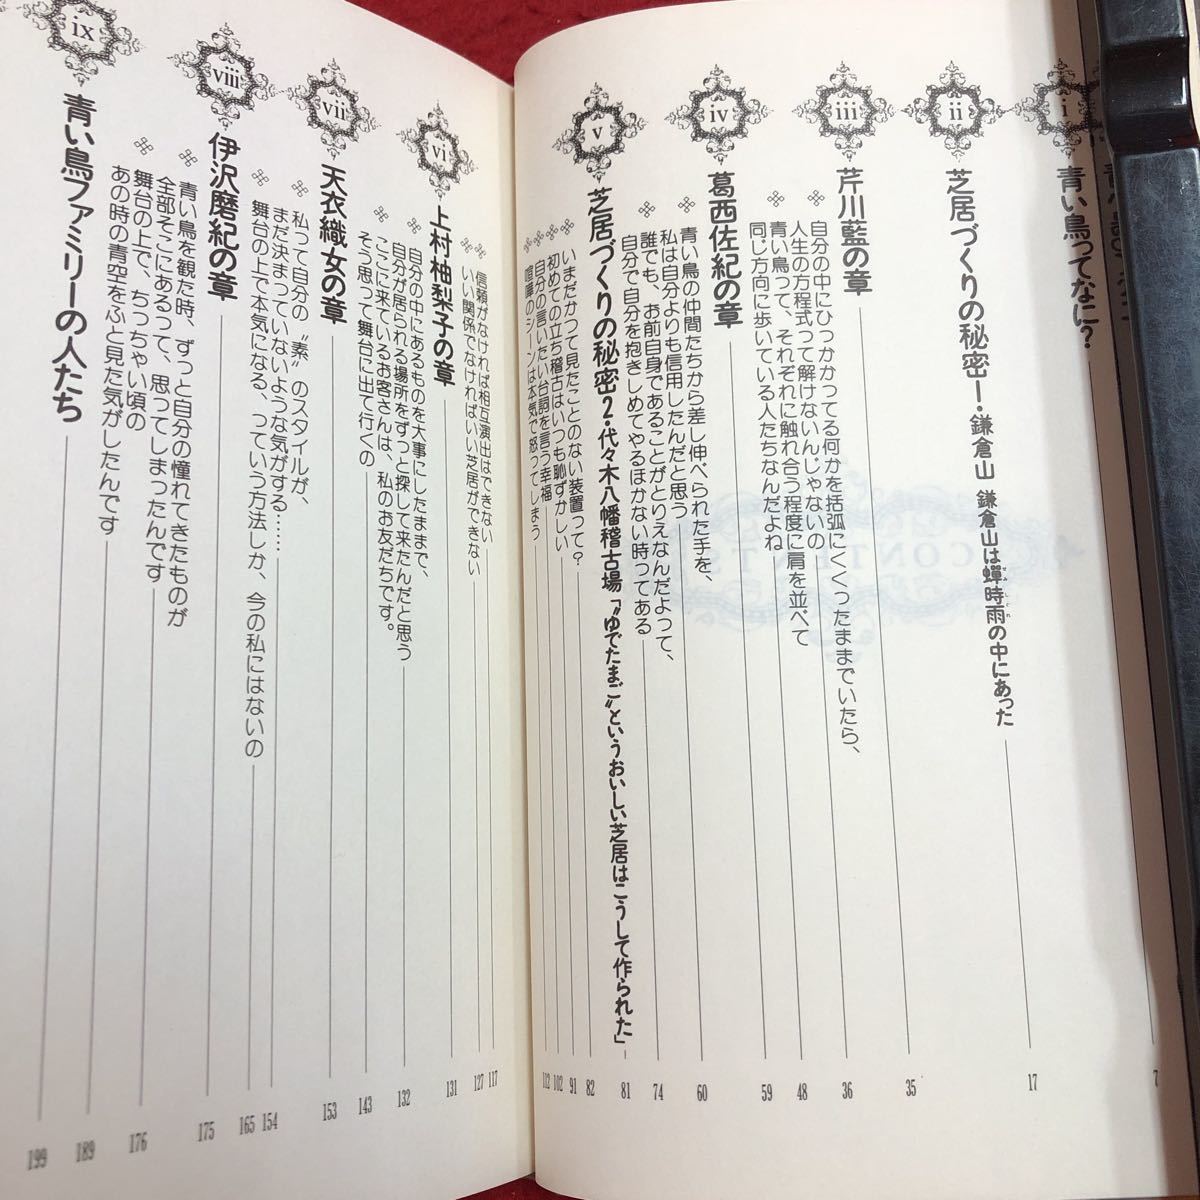 i
青い鳥ってなに?
7
ii
芝居づくりの秘密1・鎌倉山 鎌倉山は蟬時雨の中にあった
17
iii
芹川藍の章
35
自分の中にひっかかってる何かを括弧にくくったままでいたら、
人生の方程式って解けないんじゃないの
36
青い鳥って、それぞれに触れ合う程度に肩を並べて
同じ方向に歩いている人たちなんだよね
48
iv
葛西佐紀の章
59
青い鳥の仲間たちから差し伸べられた手を、
私は自分よりも信用したんだと思う
60
誰でも、お前自身であることがとりえなんだよって、
自分で自分を抱きしめてやるほかない時ってある
74
v
芝居づくりの秘密2・代々木八幡稽古場「〝ゆでたまご〟というおいしい芝居はこうして作られた」
81
いまだかつて見たことのない装置って?
82
初めての立ち稽古はいつも恥ずかしい
91
自分の言いたい台詞を言う幸福
102
喧嘩のシーンは本気で怒ってしまう
112
信頼がなければ相互演出はできない
117
いい関係でなければいい芝居ができない
127
vi
上村柚梨子の章
131
自分の中にあるものを大事にしたままで、
自分が居られる場所をずっと探して来たんだと思う
132
ここに来ているお客さんは、私のお友だちです。
そう思って舞台に出て行くの
143
vii
天衣織女の章
153
私って自分の〝素〟のスタイルが、
まだ決まっていないような気がする……
154
舞台の上で本気になる、っていう方法しか、今の私にはないの
165
viii
伊沢磨紀の章
175
青い鳥を観た時、ずっと自分の憧れてきたものが
全部そこにあるって、思ってしまったんです
176
舞台の上で、ちっちゃい頃の
あの時の青空をふと見た気がしたんです
189
ix
青い鳥ファミリーの人たち
199
CONTENTS